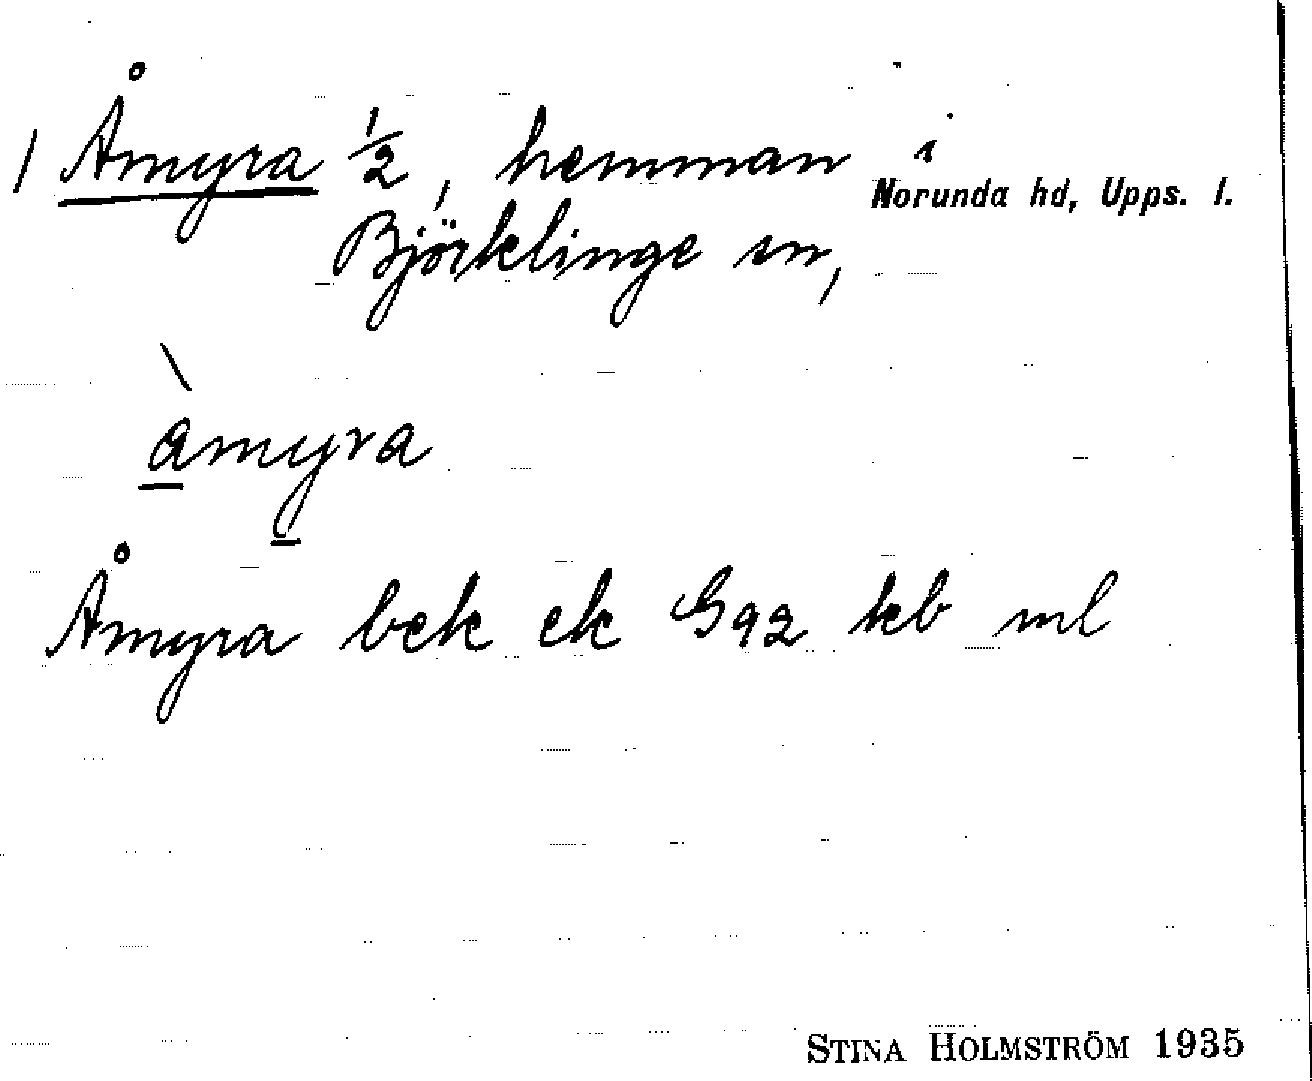 / Åmyra ½, hemman i
Norunda hd, Upps. l.
Björklinge sn,
àmyra
Åmyra bek ek G92 kb ml
STINA HOLMSTRÖM 1935